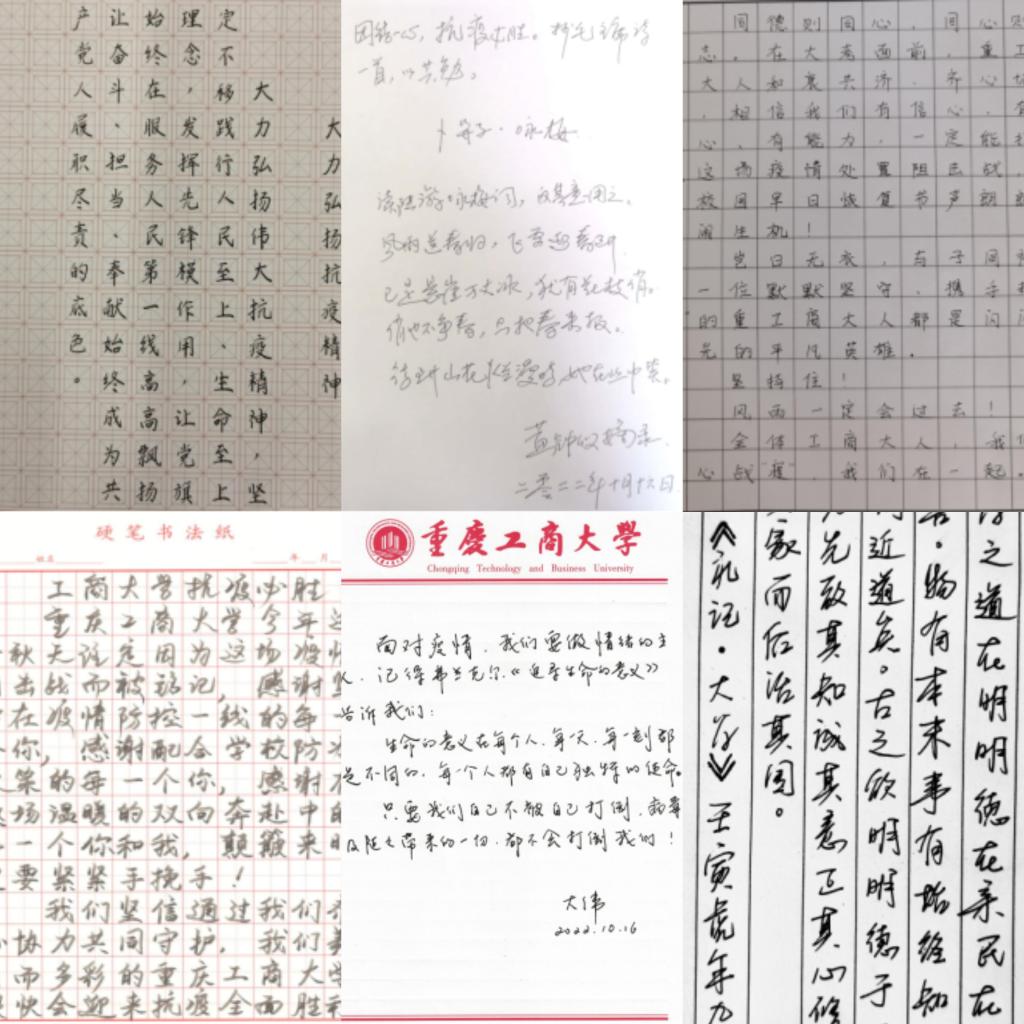 大力弘扬抗疫精神
大力弘扬伟大抗疫精神，坚
定不移践行人民至上、生命至上
理念，发挥先锋模作用，让党旗
始终在服务人民第一线高高飘扬
让奋斗、担当、奉献始终成为共
产党人履职尽责的底色。
团结一心，抗疫必胜。抄毛主席诗
一首，以共勉。
卜算子·咏梅
读陆游咏梅词，反其意用之。
风雨送春归，飞雪迎春到
已是悬崖百丈冰，犹有花枝俏。
俏也不争春，只把春来报。
待到山花烂漫时，她在丛中笑。
摘录
二〇二二年十月十六日
同德则同心，同心则
志。在大考面前，重工
大人如衷共济，齐心协
，相信我们有信心，有
心，有能力，一定能打
这场疫情处置阻击战，
校园早日恢复书声朗朗
闹生机！
岂曰无衣，与子同袍
一位默默坚守、携手
的重工商大人都是闪闪
光的平凡英雄。
坚持住！
风雨一定会过去！
全体工商大人，我们
心战“疫” 我们在一起。
硬笔书法纸
姓名 年 月
工商大学抗疫必胜
重庆工商大学今年这
秋天注定因为这场疫情
击战而被铭记，感谢坚
在疫情防控一线的每
你，感谢配合学校防疫
策的每一个你，感谢在
场温暖的双向奔赴中的
一个你和我，颠簸来时
要紧紧手挽手！
我们坚信通过我们齐
协力共同守护，我们美
而多彩的重庆工商大学
快会迎来抗疫全面胜利
重庆工商大学
Chongqing Technology and Business University
面对疫情，我们要做情绪的主
，记得弗兰克尔《追寻生命的意义》
告诉我们：
生命的意义在每个人、每一天、每一刻都
是不同的，每一个人都有自己独特的使命。
只要我们自己不被自己打倒，病毒
及随之带来的一切，都不会打倒我们！
大伟
2022.10.16
之道在明明德在亲民在
·物有本末事有始终知
近道矣。古之欲明明德于
先致其知诚其意正其心修
家而后治其国。
《礼记·大学》王寅虎年九